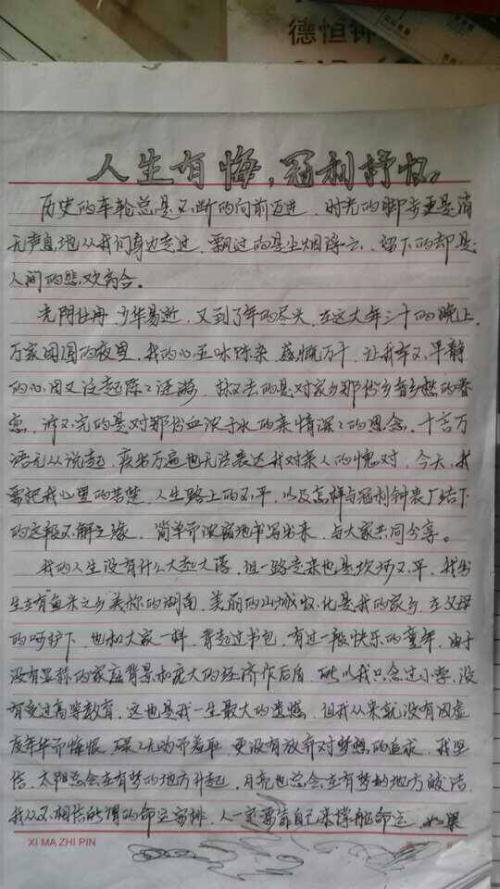 德恒钟
人生有悔，冠利抒怀。
历史的车轮总是不断的向前迈进，时光的脚步更是消
无声息地从我们身边走过，飘过的是尘烟浮云，留下的却是
人间的悲欢离合。
光阴荏苒 少华易逝，又到了年的尽头，在这大年三十的晚上
万家团圆的夜里，我的心五味陈杂，感慨万千，让我本又平静
的心田又泛起陈之涟漪，抹不去的是对家乡那份乡音乡愁的眷
恋，诉不完的是对那份血浓于水的亲情深之的思念，千言万
语无从说起，疾书万遍也无法表达我对亲人的愧对，今天，我
要把我心里的苦楚，人生路上的不平，以及怎样与冠利钟表厂结下
的这段不解之缘，简单而浓缩地书写出来，与大家共同分享。
我的人生没有什么大起大落，但一路走来也是坎坷不平，我出
生在有鱼米之乡美称的湖南，美丽的山城 化是我的家乡，在父母
的呵护下，也和大家一样，背起过书包，有过一般快乐的童年，由于
没有显赫的家庭背景和庞大的经济作后盾，所以我只念过小学，没
有受过高等教育，这也是我一生最大的遗憾，但我从来就没有因虚
度年华而悔恨，碌之无为而羞耻，更没有放弃对梦想的追求，我坚
信，太阳总会在有梦的地方升起，月亮也总会在有梦的地方皎洁
我从不相信所谓的命运安排，人一定要靠自己来撑船命运，如果
XI MA ZHI PIN